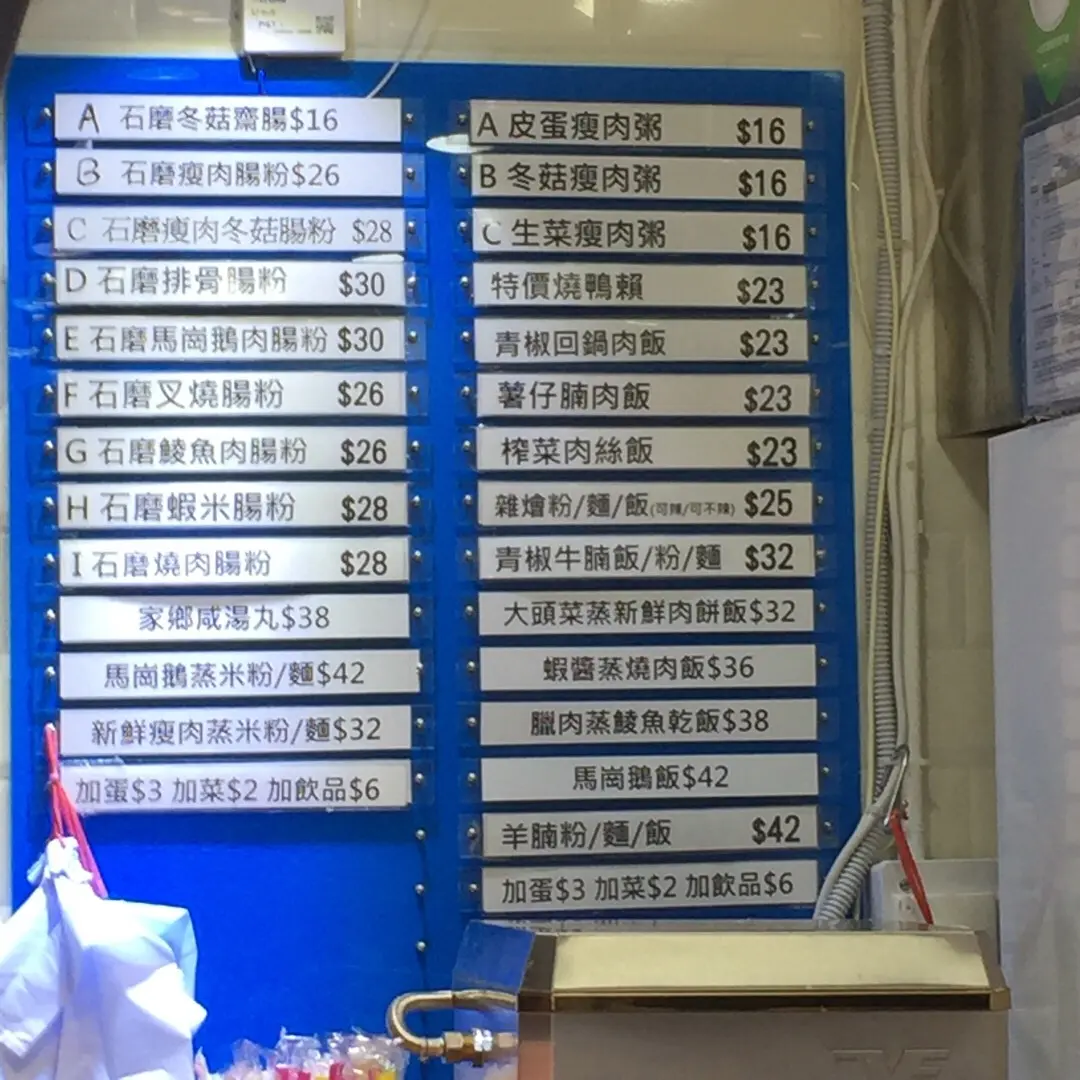 A 石磨冬菇齋腸$16
B 石磨瘦肉腸粉$26
C 石磨瘦肉冬菇腸粉 $28
D 石磨排骨腸粉 $30
E 石磨馬崗鵝肉腸粉 $30
F 石磨叉燒腸粉 $26
G 石磨鯪魚肉腸粉 $26
H 石磨蝦米腸粉 $28
I 石磨燒肉腸粉 $28
家鄉咸湯丸$38
馬崗鵝蒸米粉/麵$42
新鮮瘦肉蒸米粉/麵$32
加蛋$3 加菜$2 加飲品$6
A 皮蛋瘦肉粥 $16
B 冬菇瘦肉粥 $16
C 生菜瘦肉粥 $16
特價燒鴨賴 $23
青椒回鍋肉飯 $23
薯仔腩肉飯 $23
榨菜肉絲飯 $23
雜燴粉/麵/飯(可辣/可不辣) $25
青椒牛腩飯/粉/麵 $32
大頭菜蒸新鮮肉餅飯$32
蝦醬蒸燒肉飯$36
臘肉蒸鯪魚乾飯$38
馬崗鵝飯$42
羊腩粉/麵/飯 $42
加蛋$3 加菜$2 加飲品$6